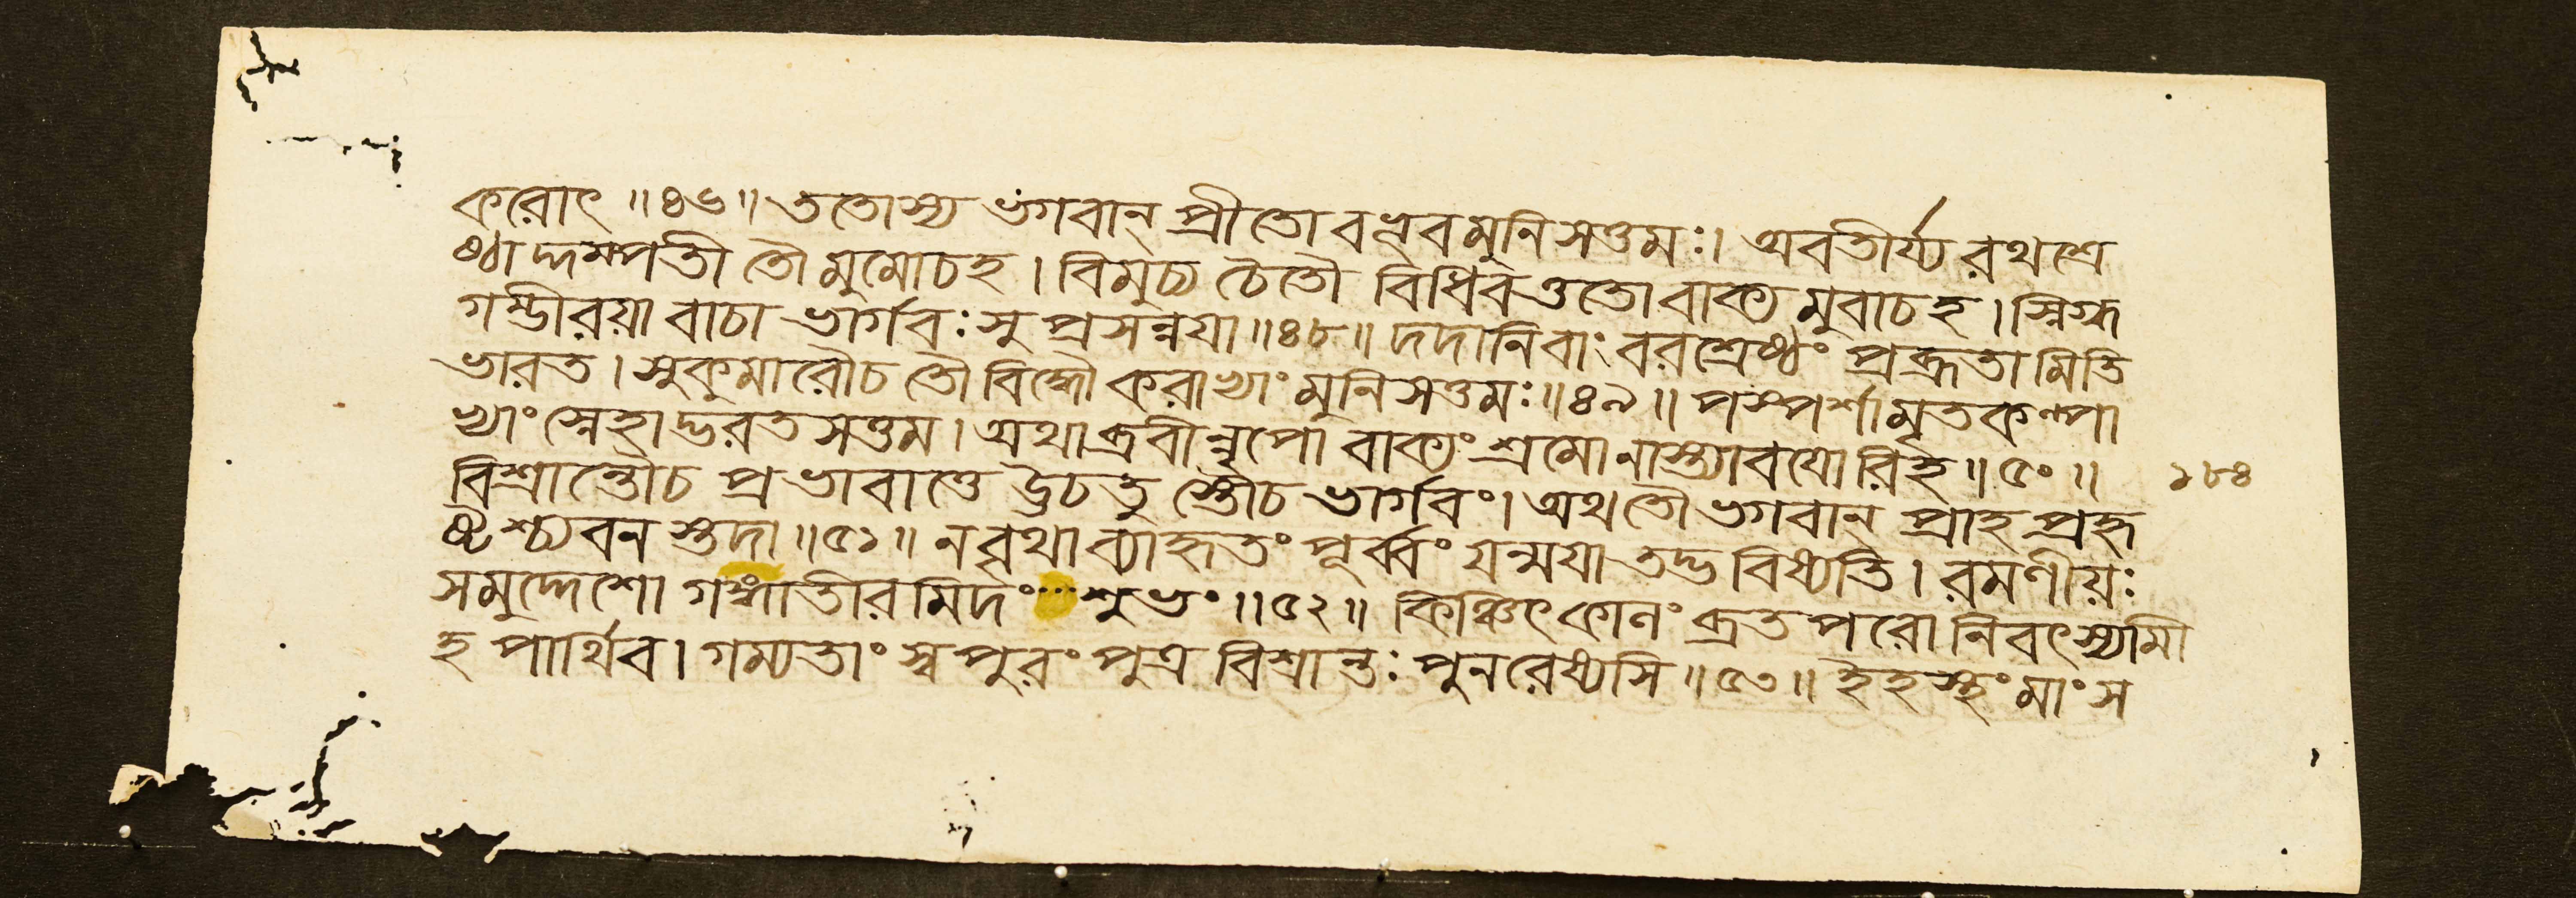 করোৎ ॥৪৬॥ ততোস্য ভগবান্ প্রীতো বভূবমুনিসত্তমঃ। অবতীর্য্য রথশ্রে
ষ্ঠা দ্দম্পতী তৌ মুমোচহ। বিমুচ্য চৈতৌ বিধিবত্ততো বাক্য মুবাচ হ। স্নিগ্ধ
গম্ভীরয়া বাচা ভার্গবঃ সু প্রসন্নয়া ॥৪৮॥ দদানি বাং বরশ্রেষ্ঠং প্রব্রূতা মিতি
ভারত। সুকুমারৌচ তৌ বিদ্ধৌ করাভ্যাং মুনিসত্তমঃ ॥৪৯॥ পস্পর্শামৃতকল্পা
ভ্যাং স্নেহাদ্ভরত সত্তম। অথাব্রবীন্নৃপো বাক্যং শ্রমো নাস্ত্যাবয়োরিহ ॥৫০॥
১৮৪
বিশ্রান্তৌচ প্রভাবাত্তে ঊচতু স্তৌচ ভার্গবং। অথ তৌ ভগবান্ প্রাহ প্রহৃ
ষ্টশ্চ্যবন স্তদা ॥৫১॥ ন বৃথা ব্যাহৃতং পূর্ব্বং যন্ময়া তদ্ভবিষ্যতি। রমণীয়ঃ
সমুদ্দেশো গঙ্গাতীরমিদং শুভং ॥৫২॥ কিঞ্চিৎ কালং ব্রতপরো নিবৎস্যামী
হ পার্থিব। গম্যতাং স্বপুরং পুত্র বিশ্রান্তঃ পুনরেষ্যসি ॥৫৩॥ ইহস্থং মাং স